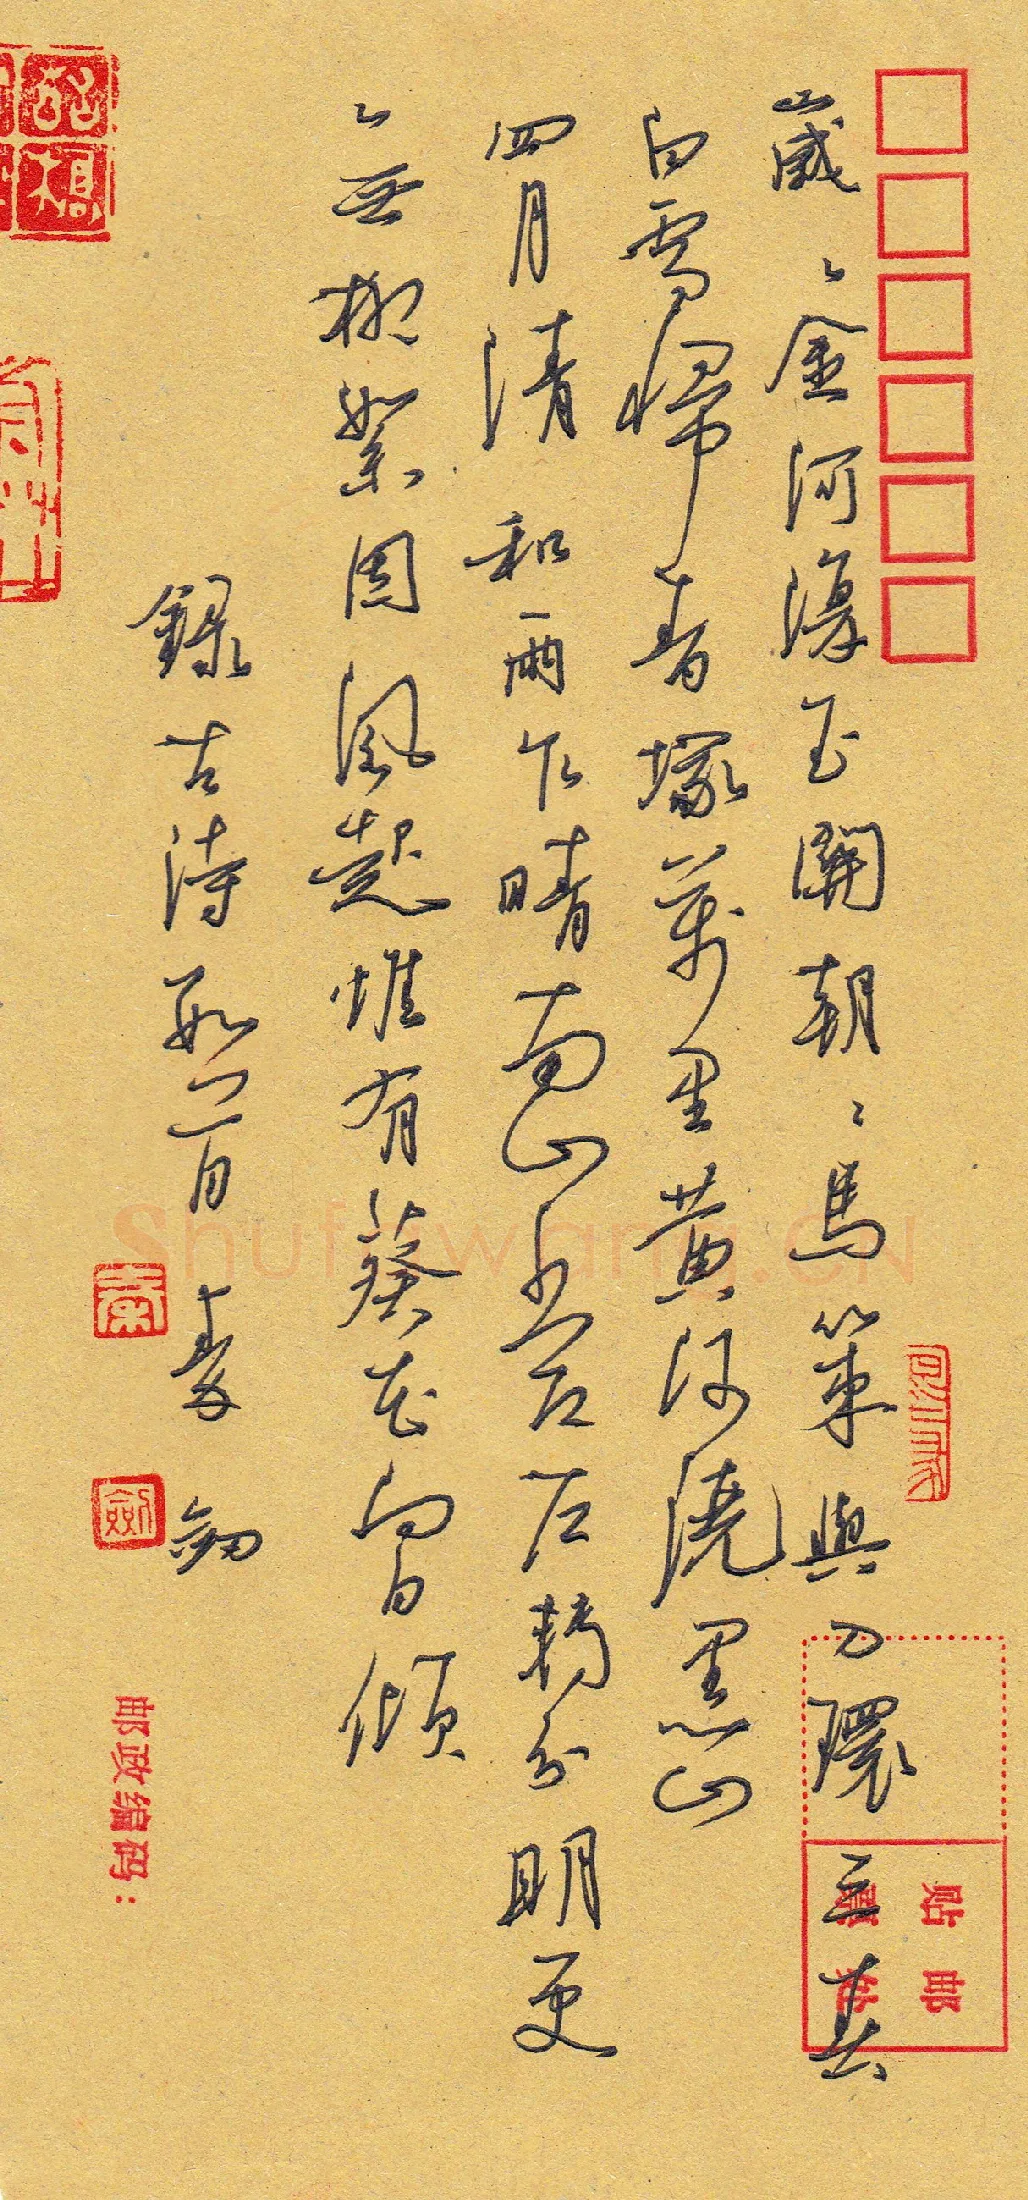 歲〻金河復玉關朝〻馬策與刀環三春
白雪歸青塚萬里黃河繞黑山
四月清和雨乍晴南山當戶轉分明更
無柳絮因風起惟有葵花向日傾
錄古詩二首 劍
劍
贴邮
票处
邮政编码：
Shufawang.CN